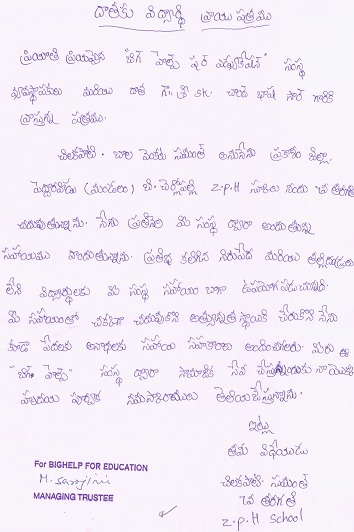 దాతకు విద్యార్థి వ్రాయు పత్రము
ప్రియాతి ప్రియమైన "బిగ్ హెల్ప్ ఫర్ ఎడ్యుకేషన్" సంస్థ
వ్యవస్థాపకులు మరియు దాత గౌ॥ శ్రీ SK. చాంద్ భాష సార్ గారికి
వ్రాస్తున్న పత్రము.
చిలకపాటి. బాల వెంకట సుమంత్ అనునేను ప్రకాశం జిల్లా,
పెద్దారవీడు (మండలం) బి. చెర్లోపల్లి Z.P.H స్కూలు నందు 7వ తరగతి
చదువుతున్నాను. నేను ప్రతినెల మీ సంస్థ ద్వారా అందుతున్న
సహాయము పొందుతున్నాను. ప్రతిభ కలిగిన నిరుపేద మరియు తల్లిదండ్రులు
లేని విద్యార్థులకు మీ సంస్థ సహాయం బాగా ఉపయోగపడుచున్నది.
మీ సహాయంతో చక్కగా చదువుకొని అత్యున్నత స్థాయికి చేరుకొని నేను
కూడా పేదలకు అనాథలకు సహాయ సహకారాలు అందించగలను. మీరు ఈ
"బిగ్ హెల్ప్" సంస్థ ద్వారా సామాజిక సేవ చేస్తున్నందుకు నా యొక్క
హృదయ పూర్వక నమస్కారములు తెలియచేస్తున్నాను.
ఇట్లు
తమ విధేయుడు
చిలకపాటి. సుమంత్
7వ తరగతి
Z.P.H School
For BIGHELP FOR EDUCATION
M. Sarojini
MANAGING TRUSTEE